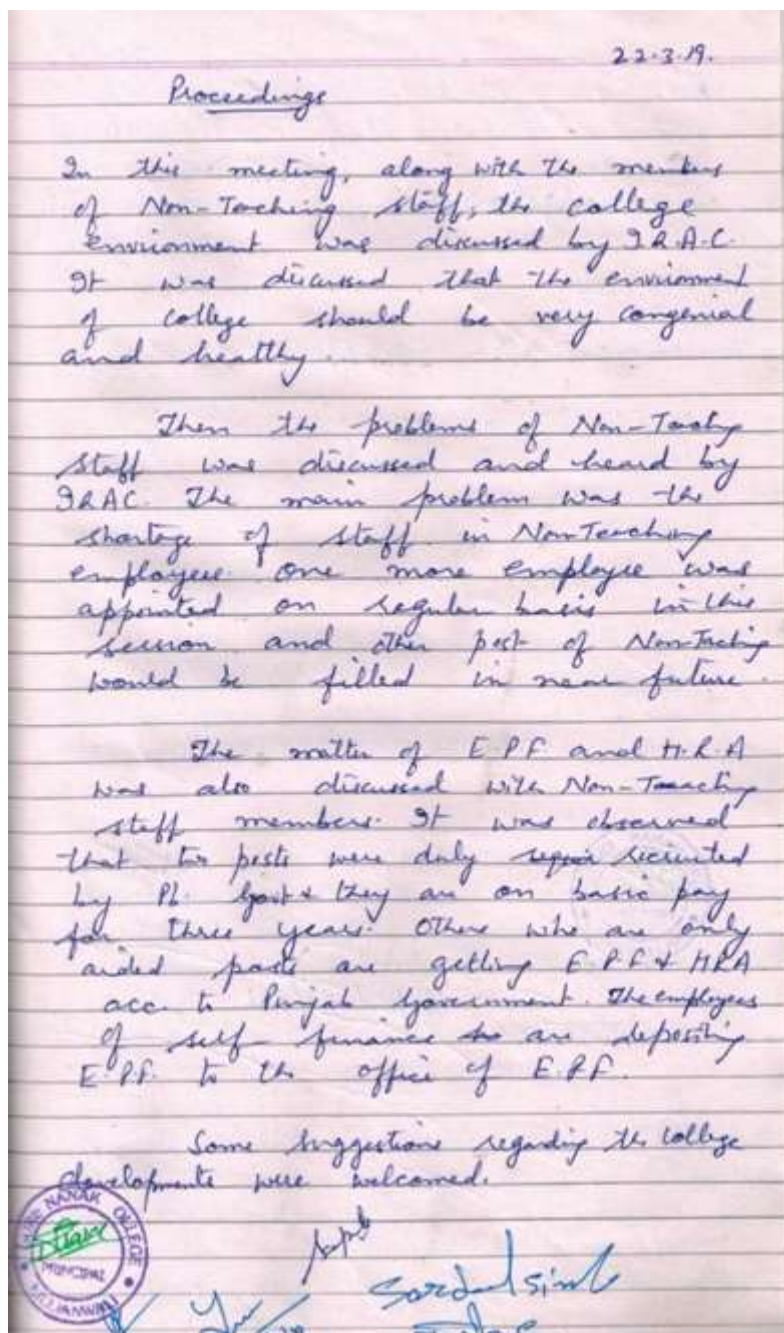 22.3.19.
Proceedings
In this meeting, along with the members
of Non-Teaching staff, the college
environment was discussed by I.Q.A.C.
It was discussed that the environment
of college should be very congenial
and healthy.
Then the problems of Non-Teaching
staff was discussed and heard by
IQAC. The main problem was the
shortage of staff in Non Teaching
employees. One more employee was
appointed on regular basis in this
session and other post of Non-Teaching
would be filled in near future.
The matter of E.P.F and H.R.A
was also discussed with Non-Teaching
staff members. It was observed
that two posts were duly recruited
by Pb. Govt & they are on basic pay
for three years. Others who are only
aided posts are getting E.P.F & HRA
acc. to Punjab Government. The employees
of self finance are depositing
E.P.F. to the office of E.P.F.
Some suggestions regarding the college
developments were welcomed.
NANAK COLLEGE
PRINCIPAL
Sardul Singh